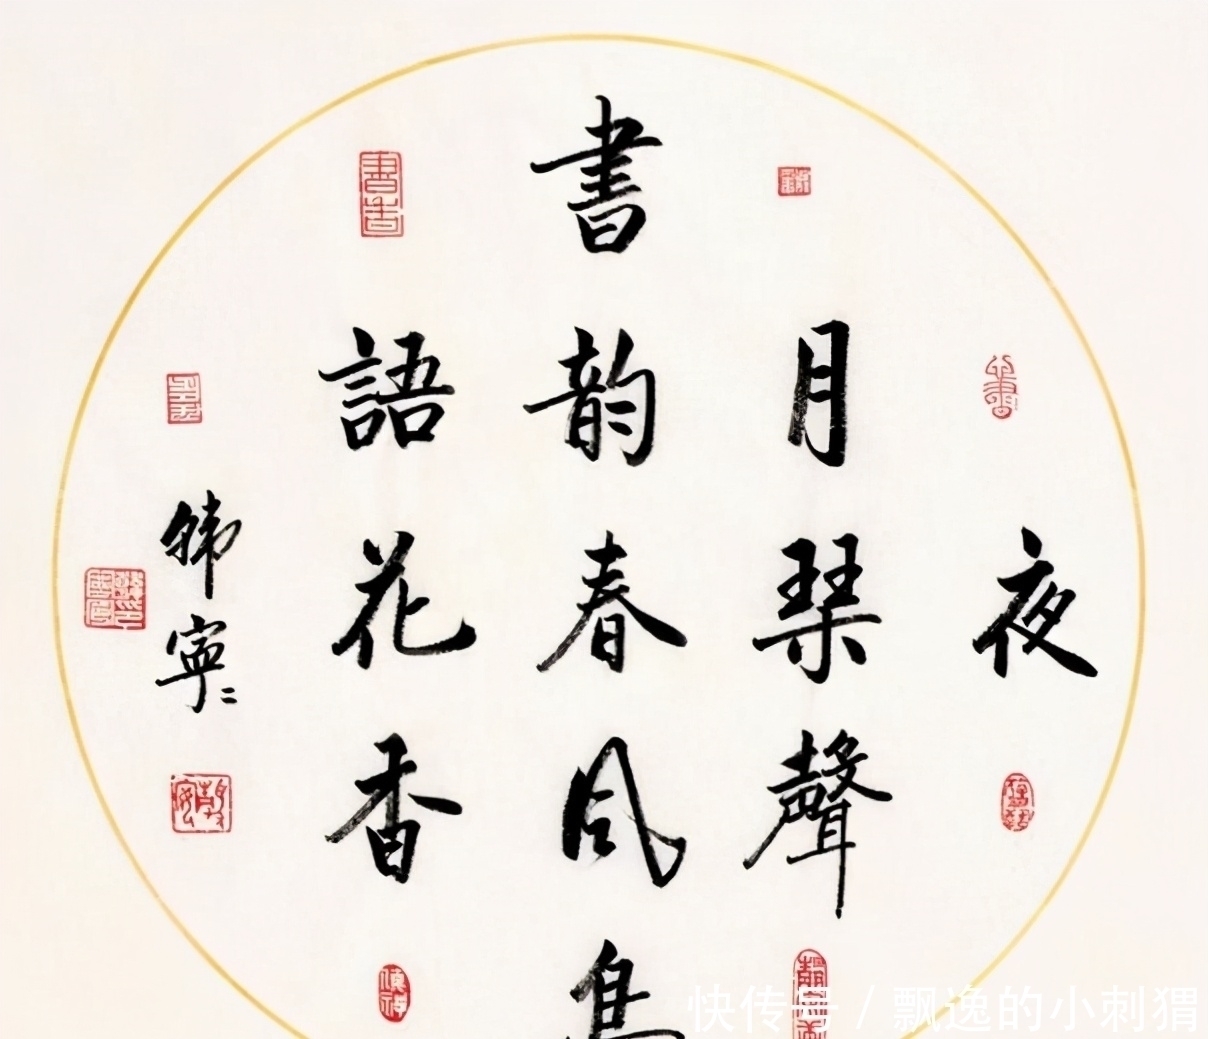 夜
月琴聲
書韵春风鳥
語花香
韩寧
快传号 / 飘逸的小刺猬